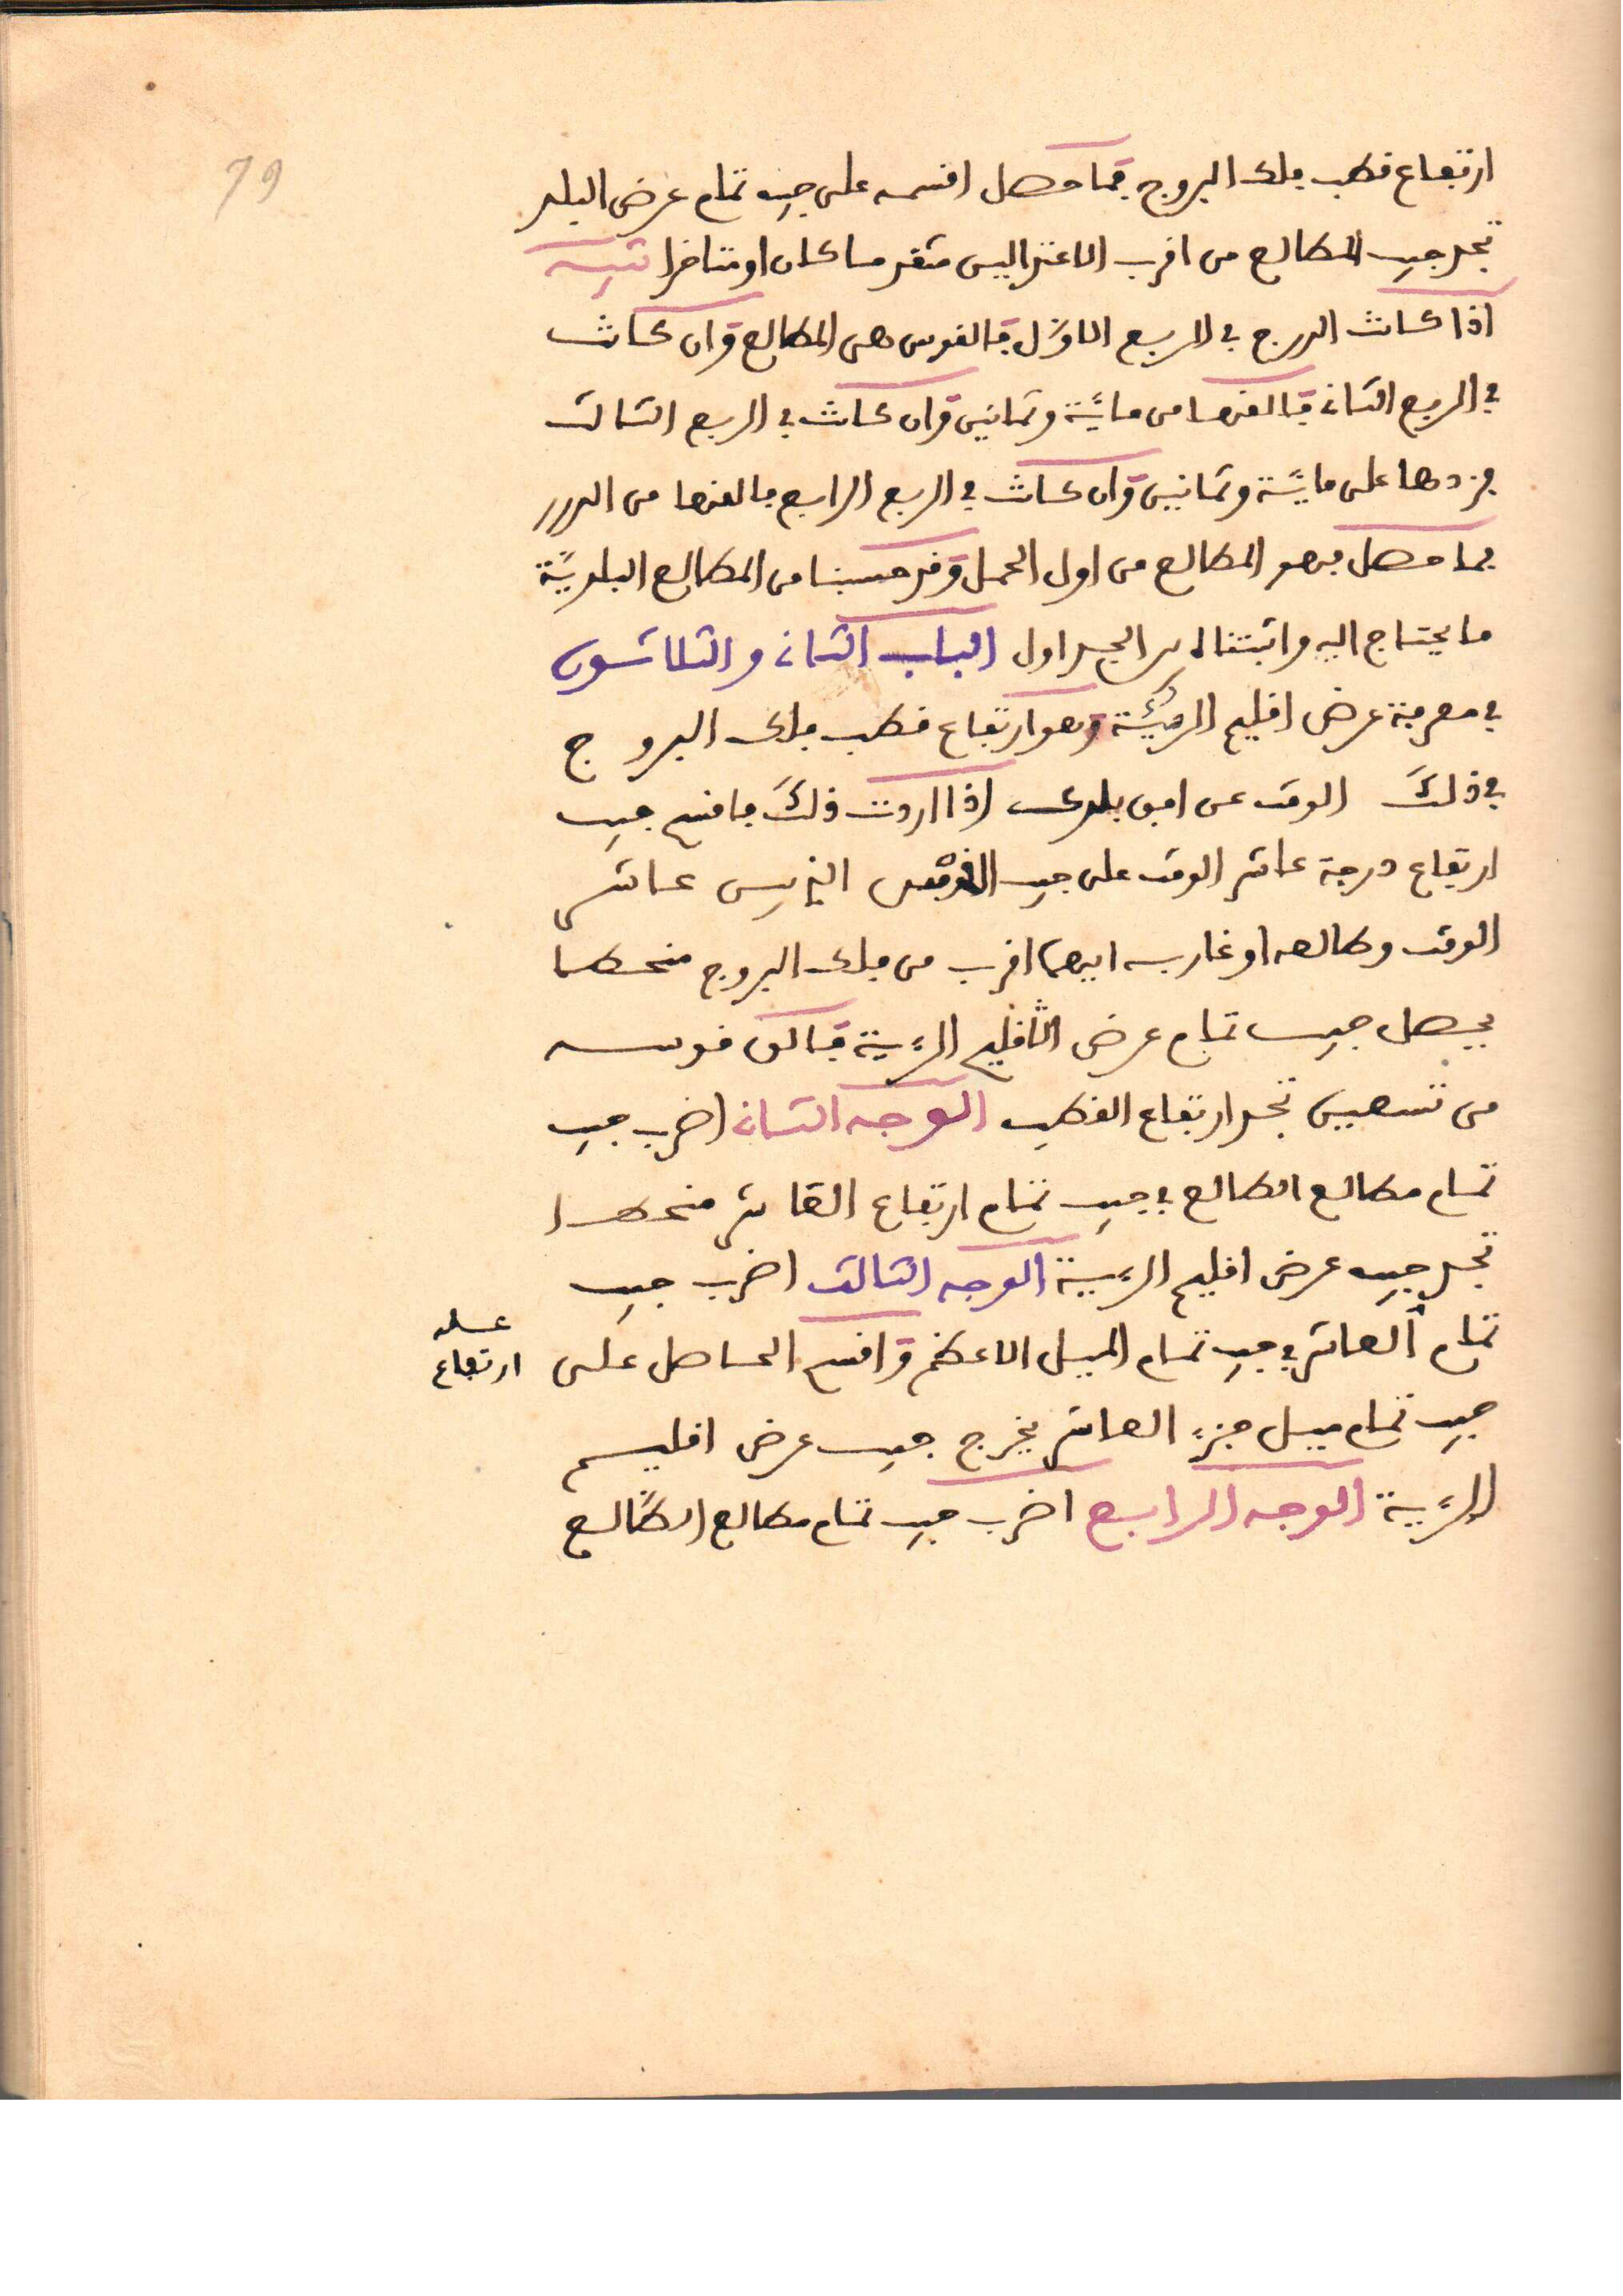 79
ارتفاع قطب فلك البروج فما حصل اقسمه على جيب تمام عرض البلد
تجد جيب المطالع من اقرب الاعتدالين متقدما كان او متاخرا تنبيه
اذا كانت الدرج في الربع الاول فالقوس هى المطالع وان كانت
في الربع الثانى فالقها من ماية وثمانين وان كانت في الربع الثالث
فزدها على ماية وثمانين وان كانت في الربع الرابع فالقها من الدور
فما حصل فهو المطالع من اول الحمل وقد حسبنا من المطالع البلدية
ما يحتاج اليه واثبتناه في الجداول الباب الثانى والثلاثون
في معرفة عرض اقليم الرؤية وهو ارتفاع قطب فلك البروج
في ذلك الوقت عن افق بلدك اذا اردت ذلك فاقسم جيب
ارتفاع درجة عاشر الوقت على جيب القوس الذى بين عاشر
الوقت وطالعه او غاربه ايهما اقرب من فلك البروج منحطا
يحصل جيب تمام عرض اقليم الرؤية فالق قوسه
من تسعين تجد ارتفاع القطب الوجه الثانى اضرب جيب
تمام مطالع الطالع في جيب تمام ارتفاع العاشر منحطا
تجد جيب عرض اقليم الرؤية الوجه الثالث اضرب جيب
تمام العاشر في جيب تمام الميل الاعظم واقسم الحاصل على
ارتفاع
جيب تمام ميل جزء العاشر يخرج جيب عرض اقليم
الرؤية الوجه الرابع اضرب جيب تمام مطالع الطالع